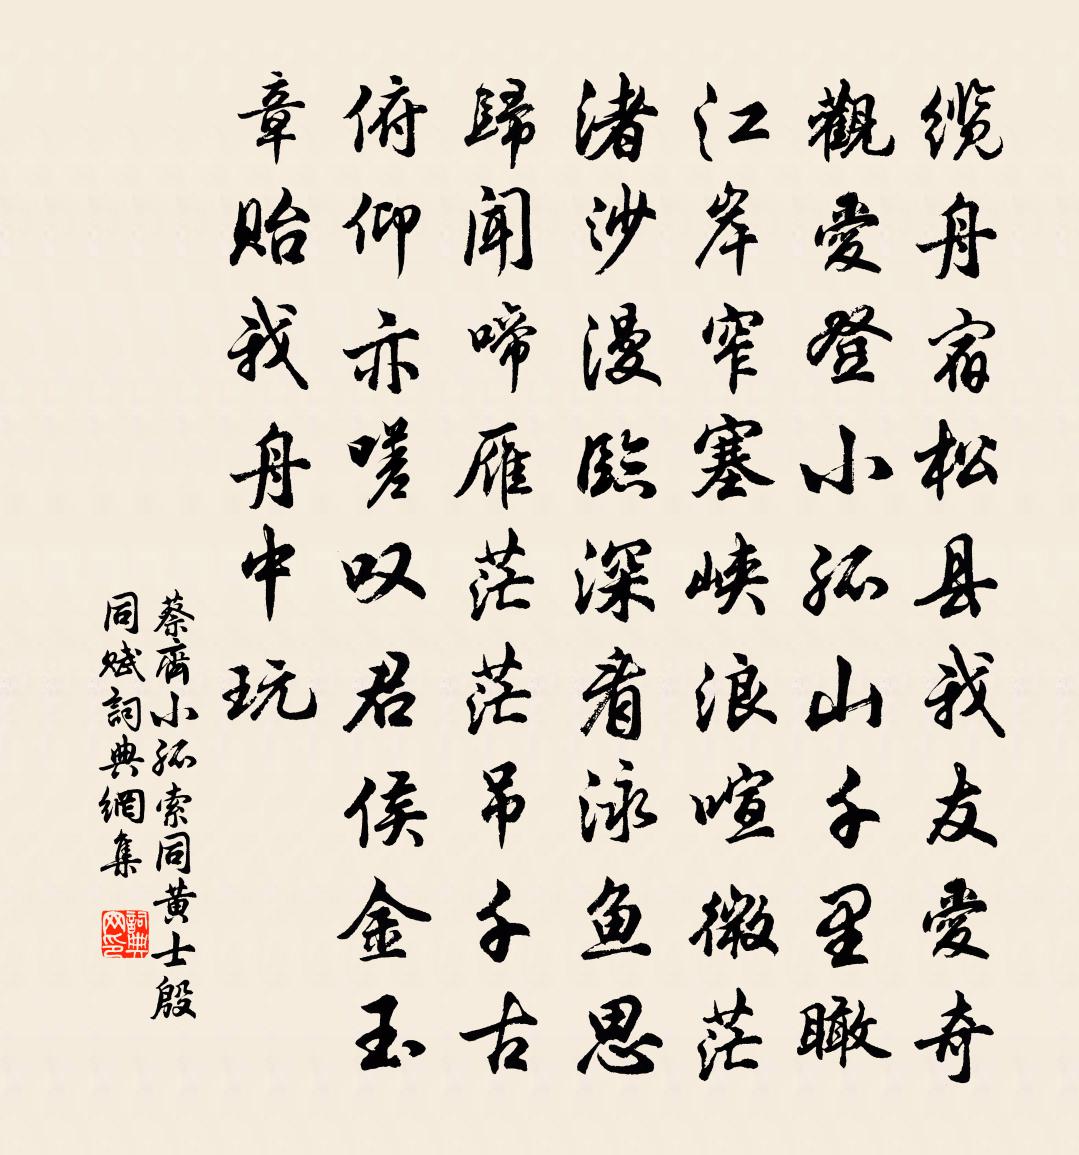 缆舟宿松县我友愛奇
觀愛登小孤山千里瞰
江岸窄塞峡浪喧微茫
渚沙漫臨深看泳鱼思
歸闻啼雁茫茫吊千古
俯仰亦嗟叹君侯金玉
章贻我舟中玩
蔡齊小孤索同黄士殷
同赋詞典網集
詞典
网印